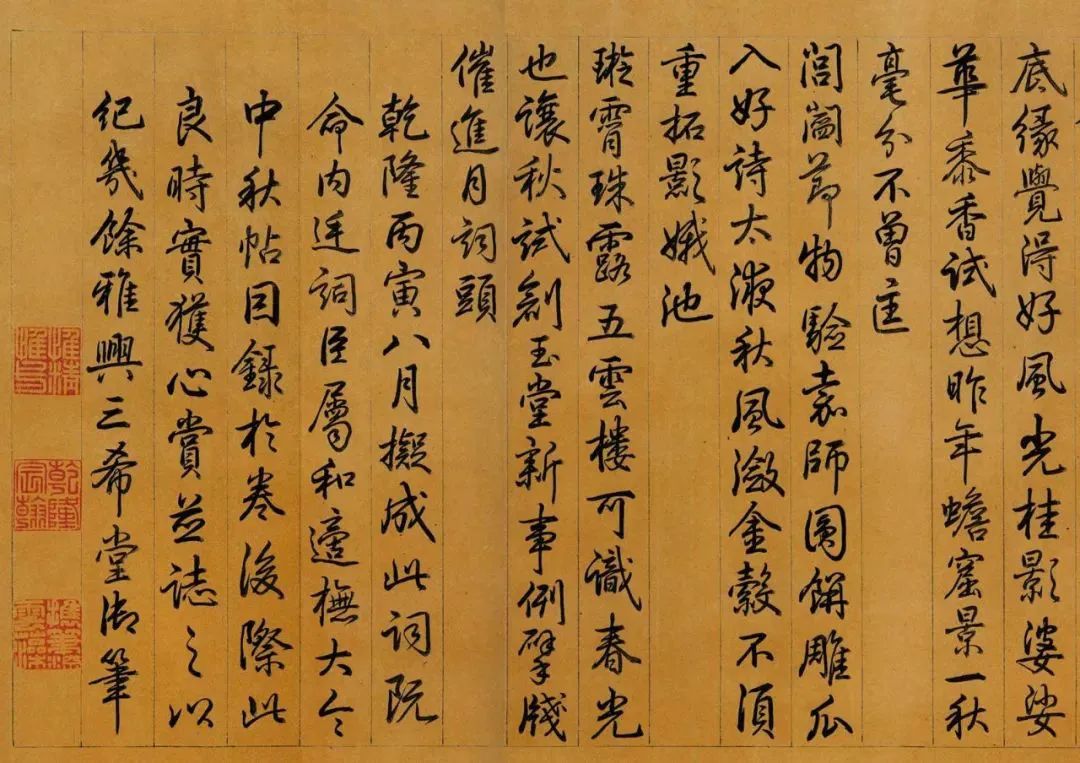 底緣覺得好風光桂影婆娑
華黍香試想昨年蟾窟景一秋
毫分不曾匡
閭閻節物驗嘉師圓餅雕瓜
入好詩太液秋風瀲金縠不須
重拓影娥池
璇霄珠露五雲樓可識春光
也讓秋試創玉堂新事例擘牋
催進月詞頭
乾隆丙寅八月擬成此詞既
命内廷詞臣屬和適橅大令
中秋帖因錄於卷後際此
良時實獲心賞並誌之以
紀幾餘雅興三希堂御筆
乾隆宸翰